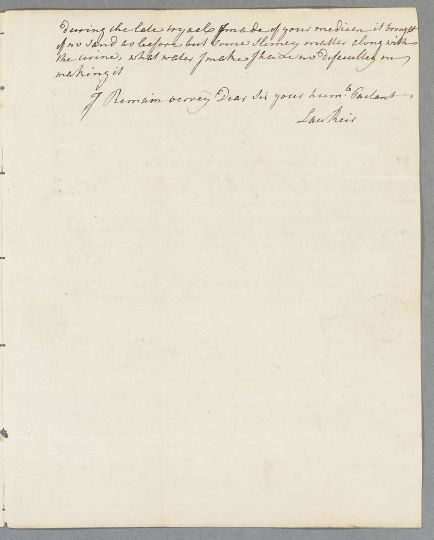 During the late tryael I made of your medicen it brought
of no sand as before but some slimey matter along with
the urine, what water I make I have no Difficulty on
making it
I Remain verrey Dear Sir your humb Servant
Lau Reid